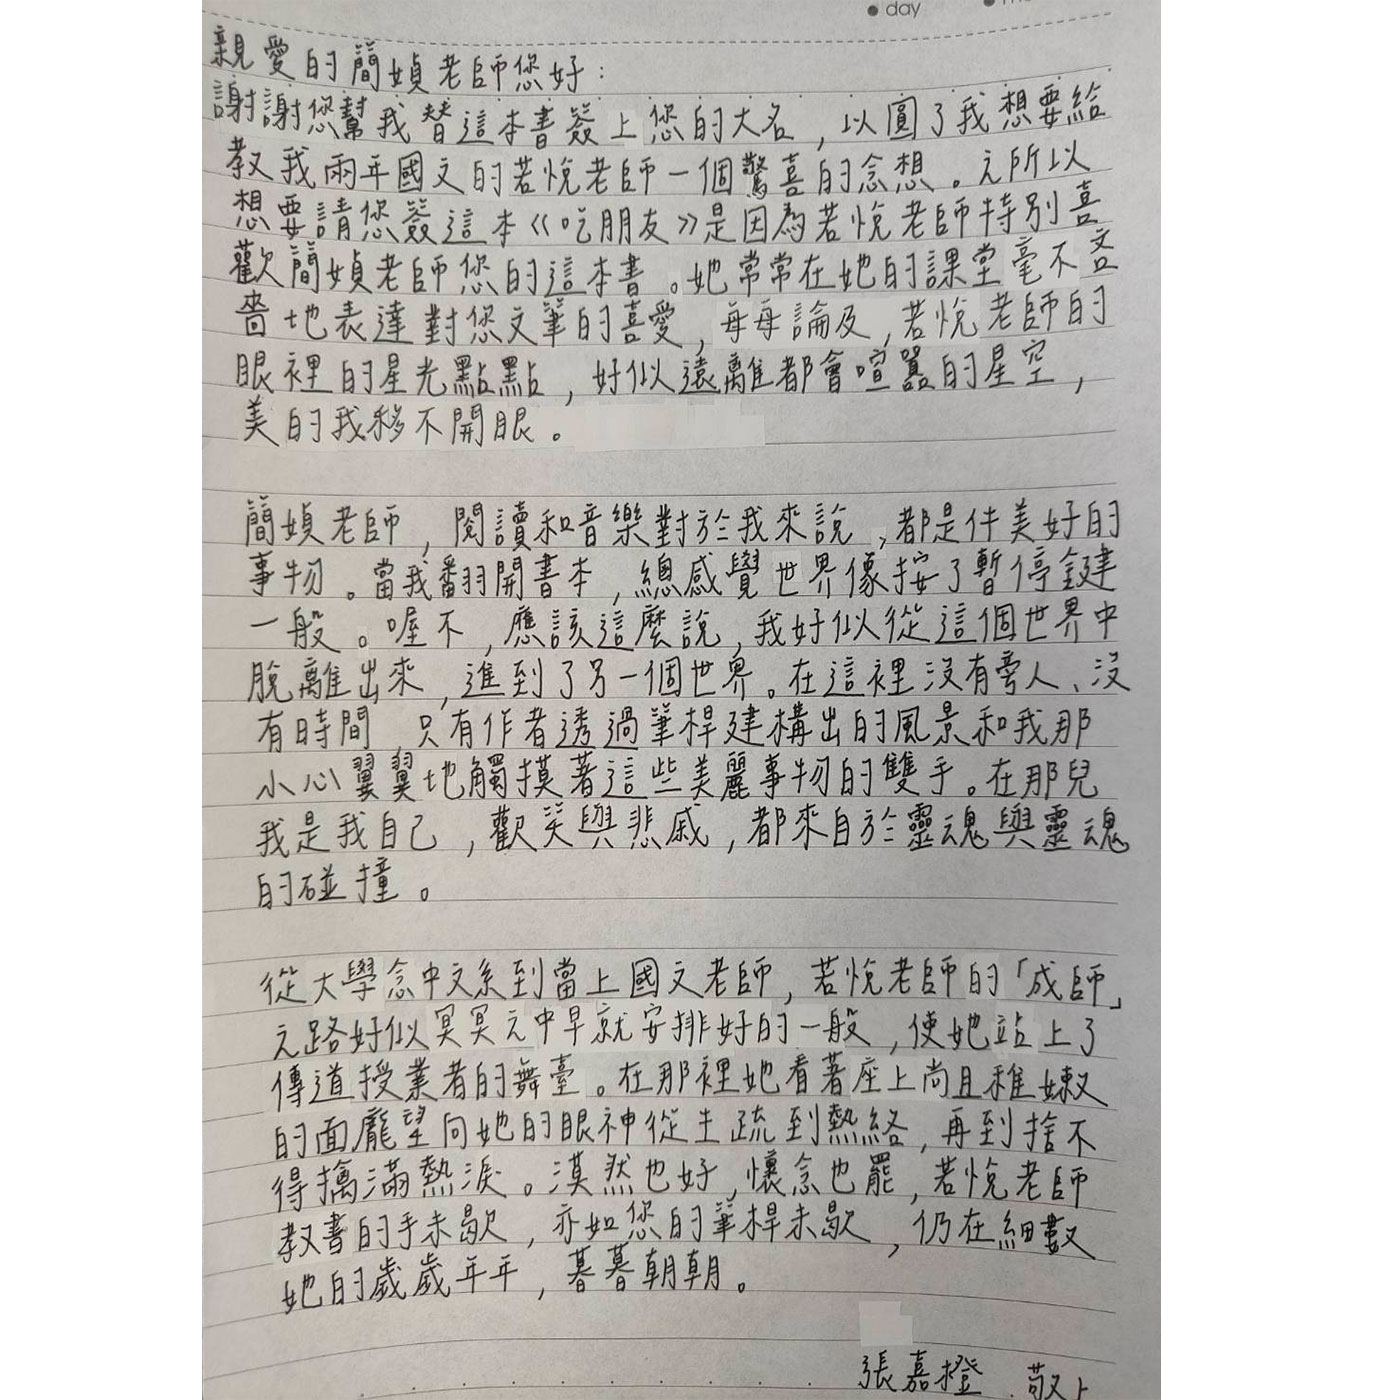 day
親愛的簡媜老師您好：
謝謝您幫我替這本書簽上您的大名，以圓了我想要給
教我兩年國文的若悅老師一個驚喜的念想。之所以
想要請您簽這本《吃朋友》是因為若悅老師特別喜
歡簡媜老師您的這本書。她常常在她的課堂毫不吝
嗇地表達對您文筆的喜愛，每每論及，若悅老師的
眼裡的星光點點，好似遠離都會喧囂的星空，
美的我移不開眼。
簡媜老師，閱讀和音樂對於我來說，都是件美好的
事物。當我翻開書本，總感覺世界像按了暫停鍵
一般。喔不，應該這麼說，我好似從這個世界中
脫離出來，進到了另一個世界。在這裡沒有旁人、沒
有時間 只有作者透過筆桿建構出的風景和我那
小心翼翼地觸摸著這些美麗事物的雙手。在那兒
我是我自己，歡笑與悲戚，都來自於靈魂與靈魂
的碰撞。
從大學念中文系到當上國文老師，若悅老師的「成師」
之路好似冥冥之中早就安排好的一般，使她站上了
傳道授業者的舞臺。在那裡她看著座上尚且稚嫩
的面龐望向她的眼神從生疏到熱絡，再到捨不
得擒滿熱淚。漠然也好，懷念也罷，若悅老師
教書的手未歇，亦如您的筆桿未歇，仍在細數
她的歲歲年年，暮暮朝朝。
張嘉橙 敬上